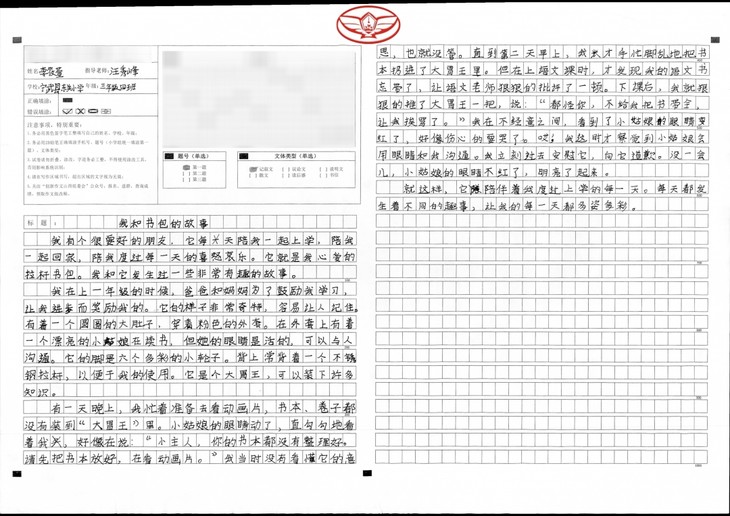 姓名: 指导老师:
学校: 年级:
正确填涂:
错误填涂:
注意事项,特别重要:
题号(单选)
第一题
第二题
第三题
文体类型(单选)
记叙文
议论文
说明文
散文
读后感
书信
标题: 我和书包的故事
我有个很要好的朋友,它每天陪我一起上学,陪我
一起回家,陪我度过每一天的喜怒哀乐。它就是我心爱的
拉杆书包。我和它发生过一些非常有趣的故事。
我在上一年级的时候,爸爸和妈妈为了鼓励我学习,
让我进步而奖励我的。它的样子非常奇特,容易让人记住。
有着一个圆圆的大肚子,穿着粉色的外套。在外套上有着
一个漂亮的小姑娘在读书,但她的眼睛是活的,可以与人
沟通。它的脚是六个多彩的小轮子。背上常背着一个不锈
钢拉杆,以便于我的使用。它是个大胃王,可以装下许多
知识。
有一天晚上,我忙着准备去看动画片,书本、卷子都
没有装到“大胃王”里。小姑娘的眼睛动了,直勾勾地看
着我,好像在说:“小主人,你的书本都没有整理好。
请先把书本放好,在看动画片。”我当时没有看懂它的意
思,也就没管。直到第二天早上,我才手忙脚乱地把书
本扔进了大胃王里。但在上语文课时,才发现我的语文书
忘带了,让语文老师狠狠的批评了一顿。下课后,我就狠
狠的推了大胃王一把,说:“都怪你,不给我把书带全,
让我挨骂了。”我在不经意之间,看到了小姑娘的眼睛变
红了,好像伤心的要哭了。哎,我这时才察觉到小姑娘会
用眼睛和我沟通。我立刻过去安慰它,向它道歉。没一会
儿,小姑娘的眼睛不红了,明亮了起来。
就这样,它陪伴着我度过上学的每一天。每天都发
生着不同的趣事,让我的每一天都多姿多彩。